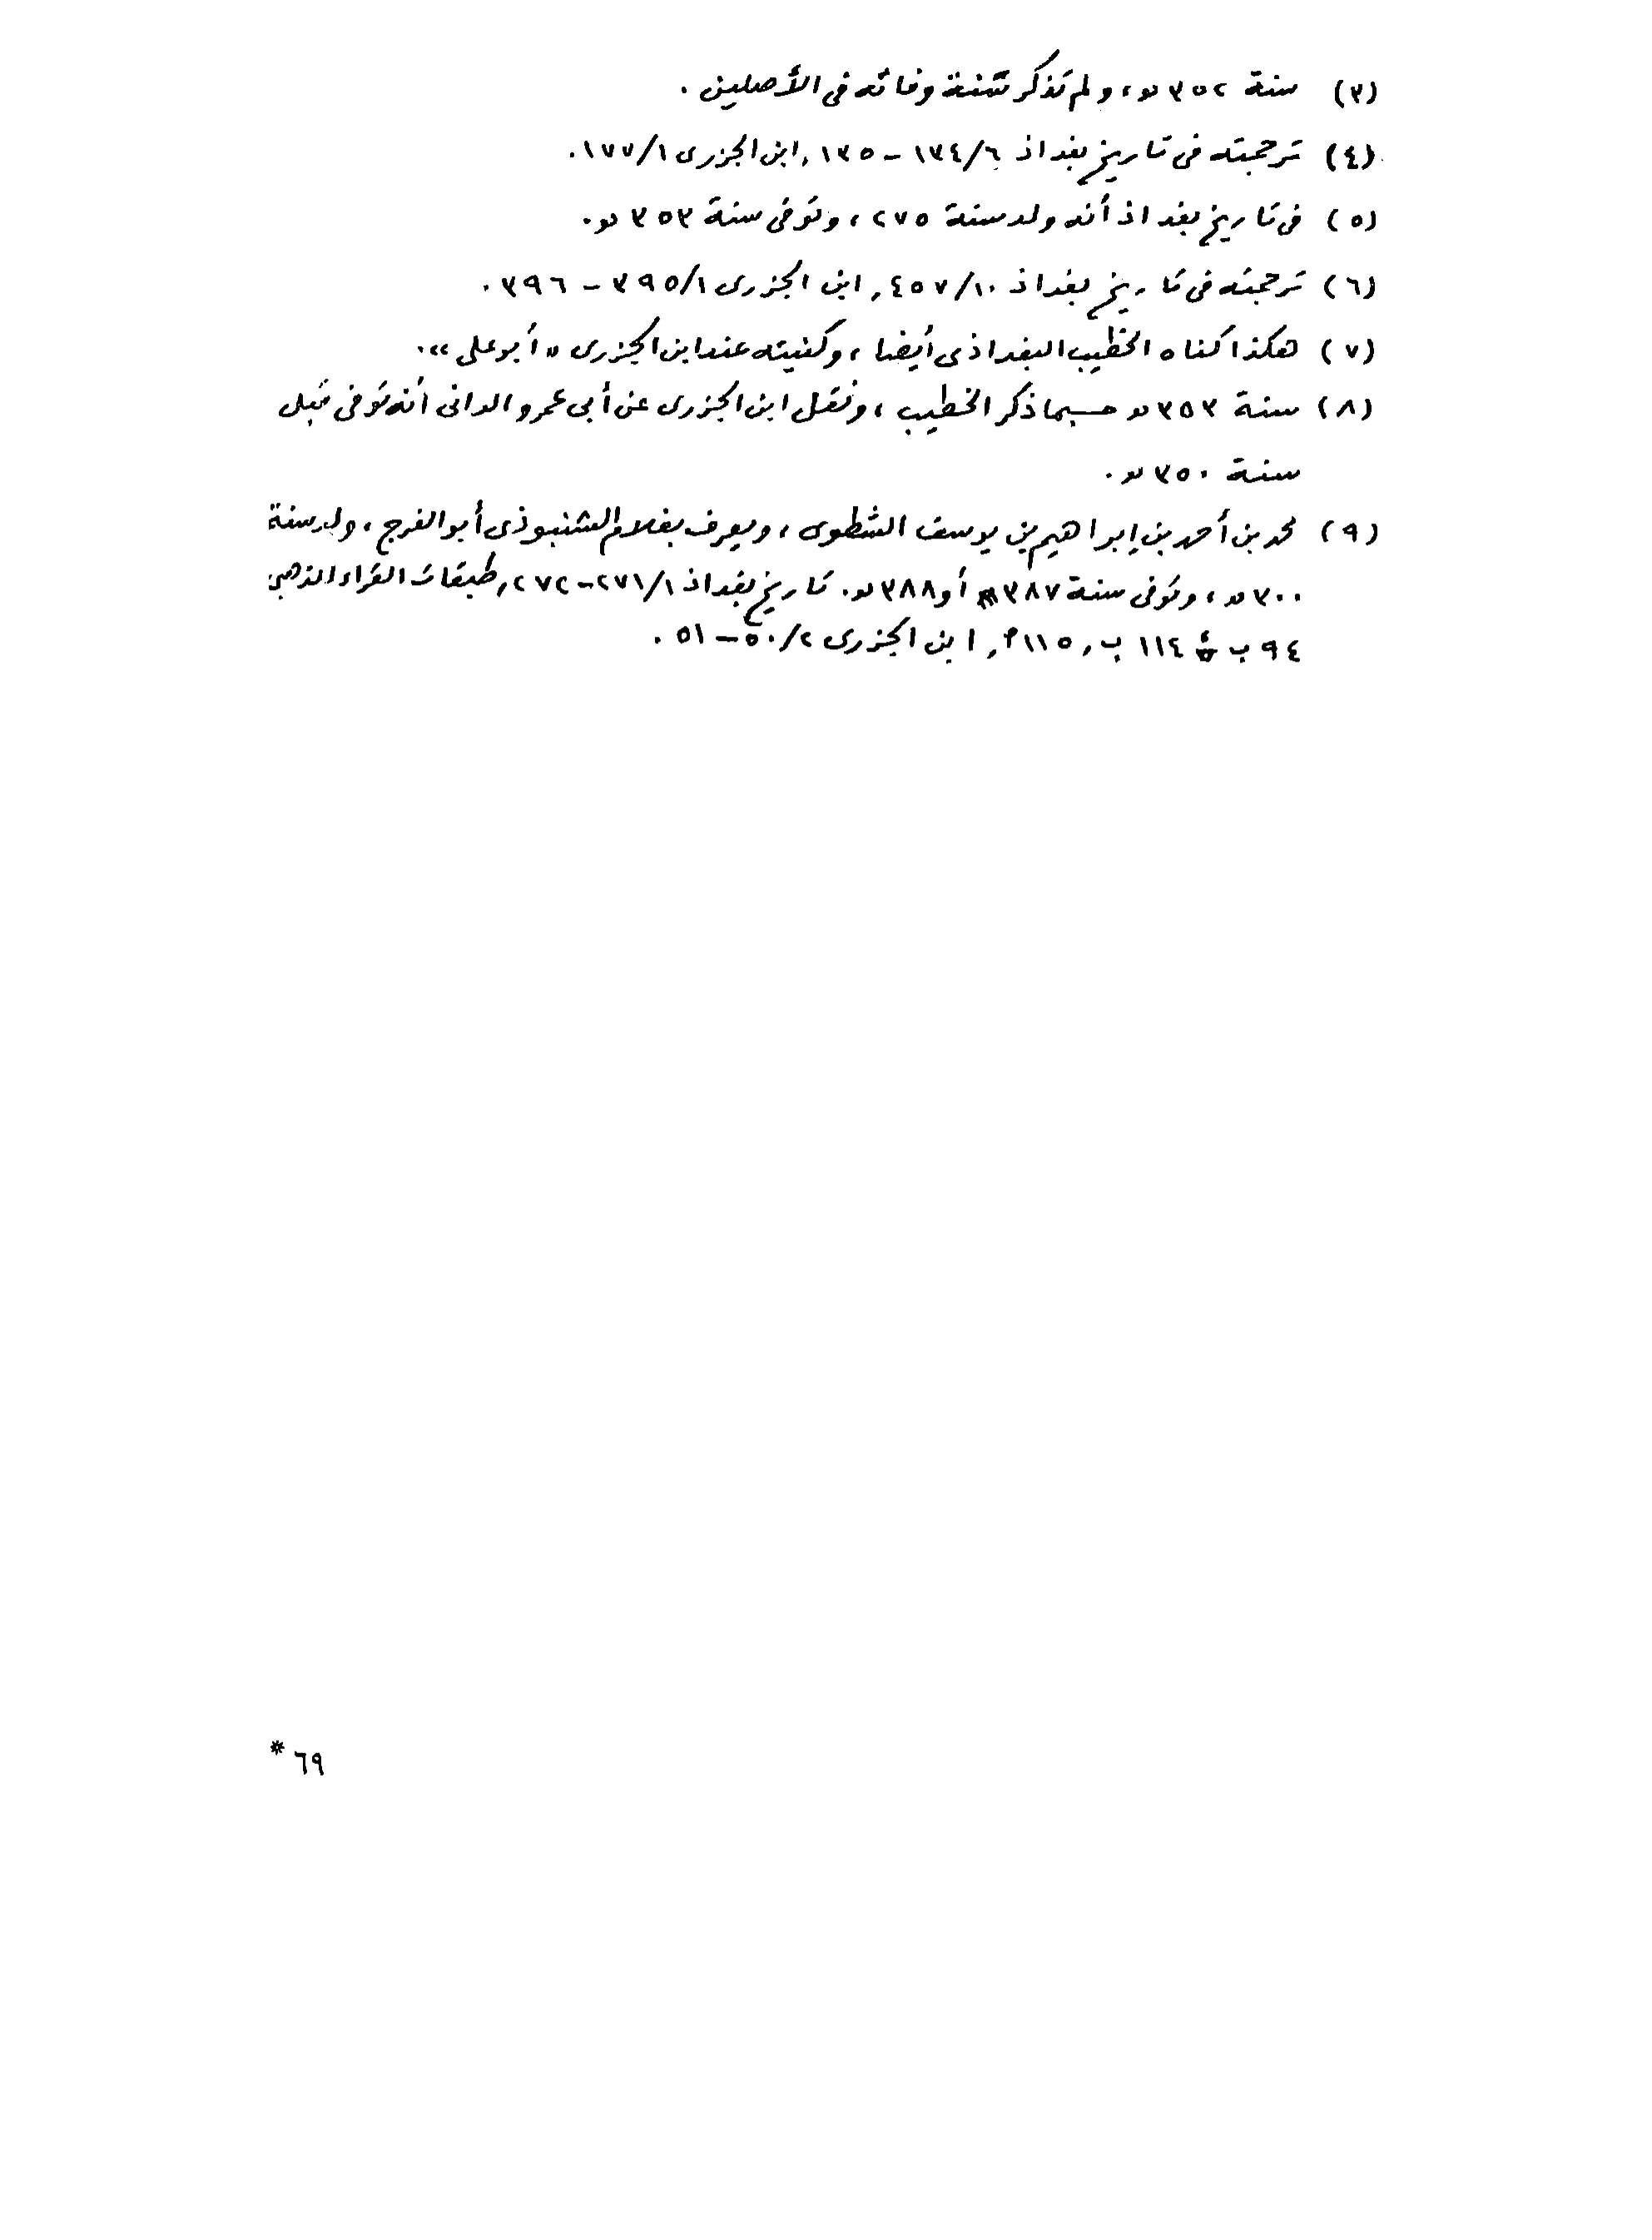 (٣) سنة ٣٥٢ هـ، ولم تذكر سنة وفاته فى الأصلين .
(٤) ترجمته فى تاريخ بغداذ ١٣٤/٦ – ١٣٥, ابن الجزرى ١٧٧/١.
(٥) فى تاريخ بغداذ أنه ولد سنة ٢٧٥ ، وتوفى سنة ٣٥٣ هـ.
(٦) ترجمته فى تاريخ بغداذ ٤٥٧/١٠, ابن الجزرى ٣٩٥/١ – ٣٩٦ .
(٧) هكذا كناه الخطيب البغداذى أيضا ، وكنيته عند ابن الجزرى « أبو على ».
(٨) سنة ٣٥٣ هـ حسبما ذكر الخطيب ، ونقل ابن الجزرى عن أبى عمرو الدانى أنه توفى قبل
سنة ٣٥٠ هـ .
(٩) محمد بن أحمد بن إبراهيم بن يوسف الشطوى ، ويعرف بغلام الشنبوذى أبو الفرج ، ولد سنة
٣٠٠ هـ ، وتوفى سنة ٣٨٧ أو ٣٨٨ هـ. تاريخ بغداذ ٢٧١/١–٢٧٢, طبقات القراء الذهبى
٩٤ ب ١١٤ ب, ١١٥ م, ابن الجزرى ٥٠/٢–٥١ .
٦٩ *